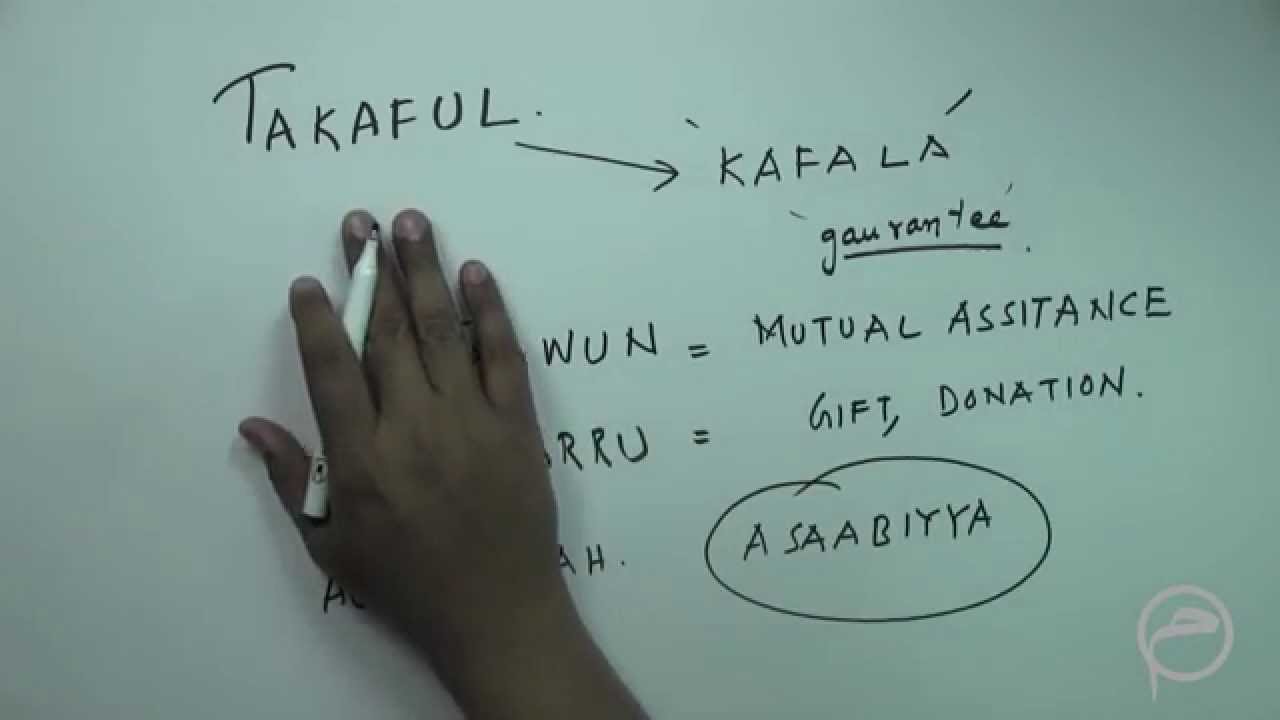 TAKAFUL.
'KAFALA'
'gaurantee'.
WUN = MUTUAL ASSITANCE
RRU = GIFT, DONATION.
AH. ASAABIYYA